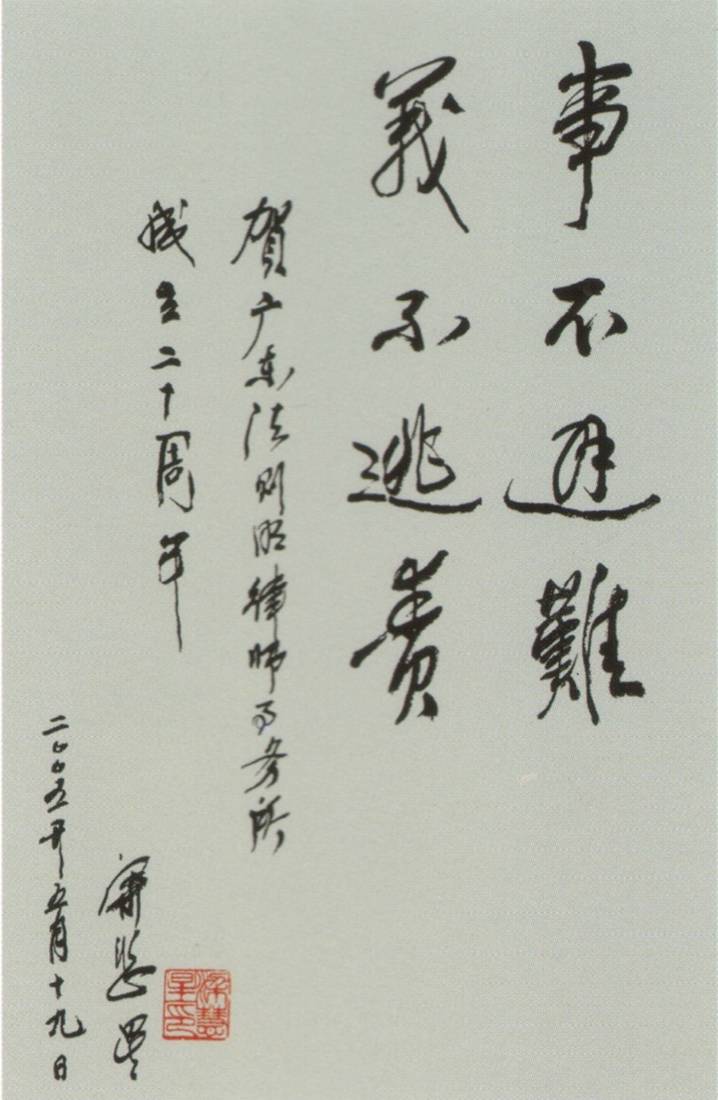 事不避難
義不逃責
賀广东法则明律师事务所
成立二十周年
梁慧星
二〇〇五年五月十九日
梁慧星印